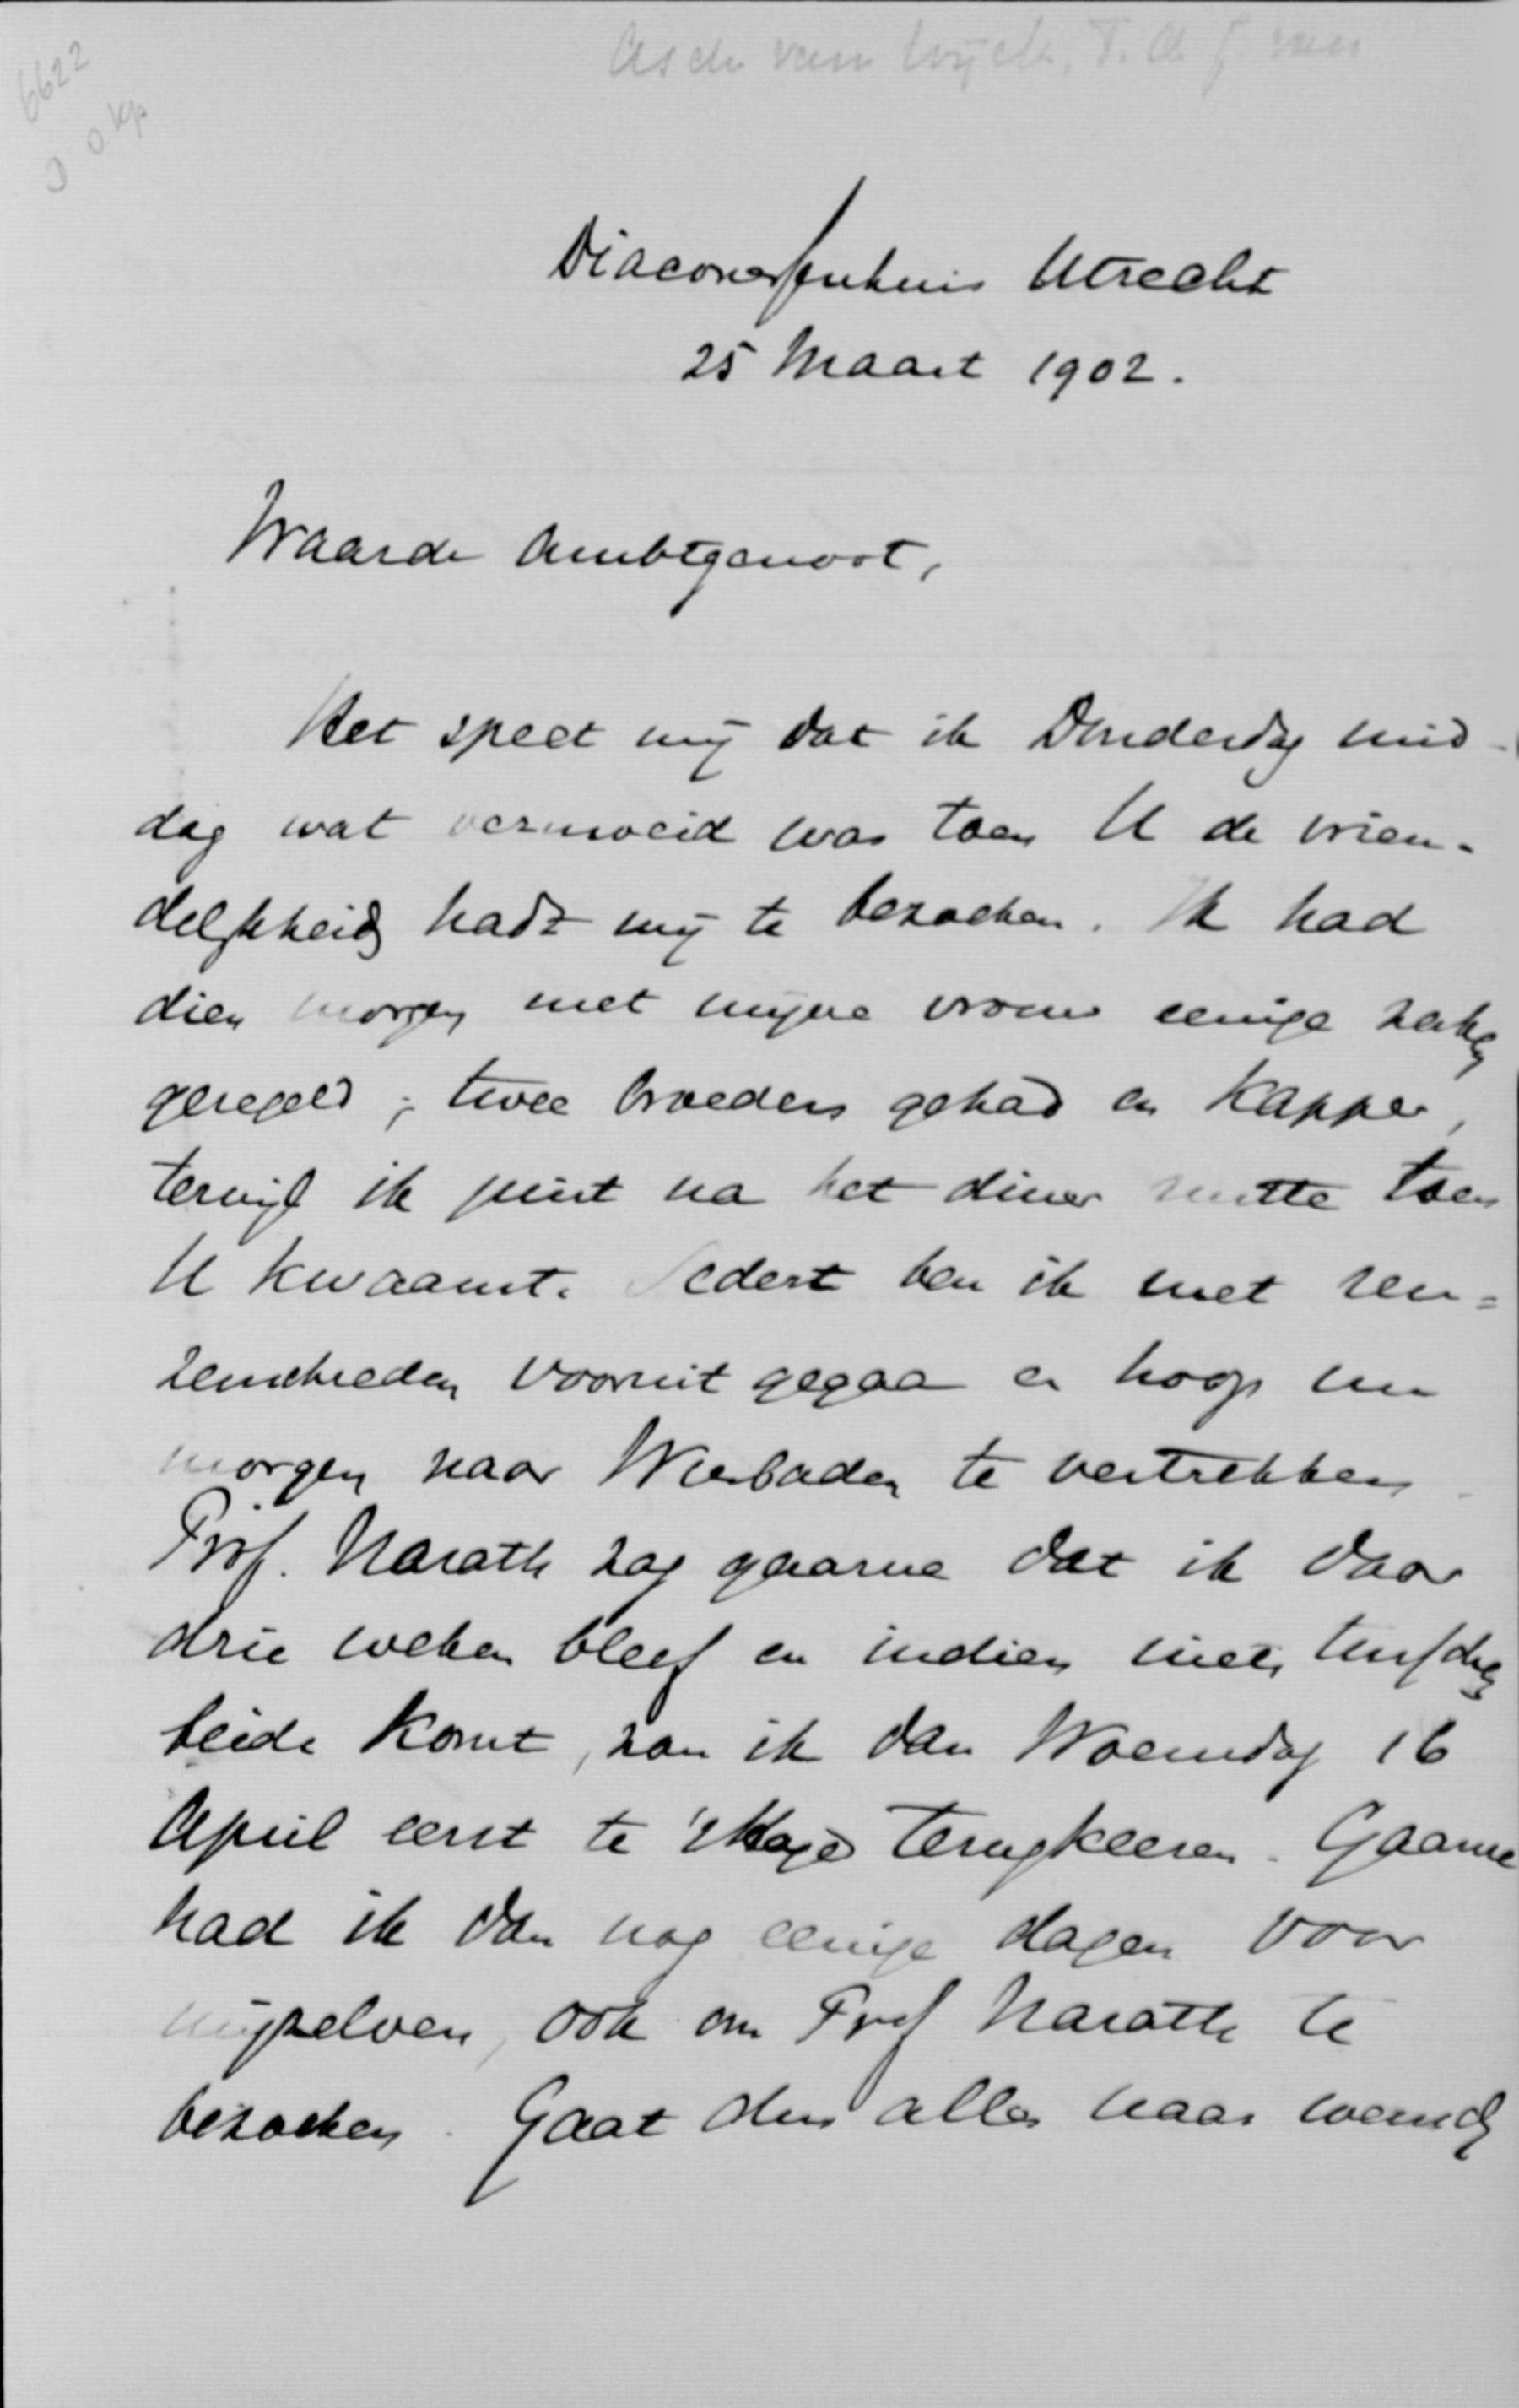 6622
Asch van Wijck, T. A. J. van
Diaconessenhuis Utrecht
25 Maart 1902.
Waarde Ambtgenoot,
Het speet mij dat ik Donderdag mid-
dag wat vermoeid was toen U de vrien-
delijkheid hadt mij te bezoeken. Ik had
dien morgen met mijne vrouw eenige zaken
geregeld; twee broeders gehad en kapper,
terwijl ik juist na het diner rustte toen
U kwaamt. Sedert ben ik met reu=
zenschreden vooruit gegaan en hoop nu
morgen naar Wiesbaden te vertrekken.
Prof. Narath zag gaarne dat ik daar
drie weken bleef en indien niets tusschen
beide komt, zou ik dan Woensdag 16
April eerst te 'sHage terugkeeren. Gaarne
had ik dan nog eenige dagen voor
mijzelven, ook om Prof Narath te
bezoeken. Gaat dus alles naar wensch